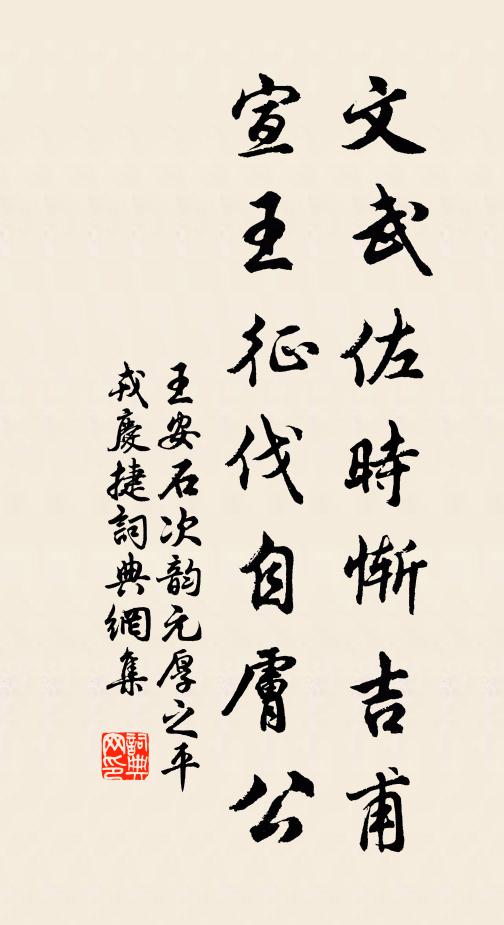 文武佐時慚吉甫
宣王征伐自膚公
王安石次韵元厚之平
戎慶捷詞典網集
詞典
网印